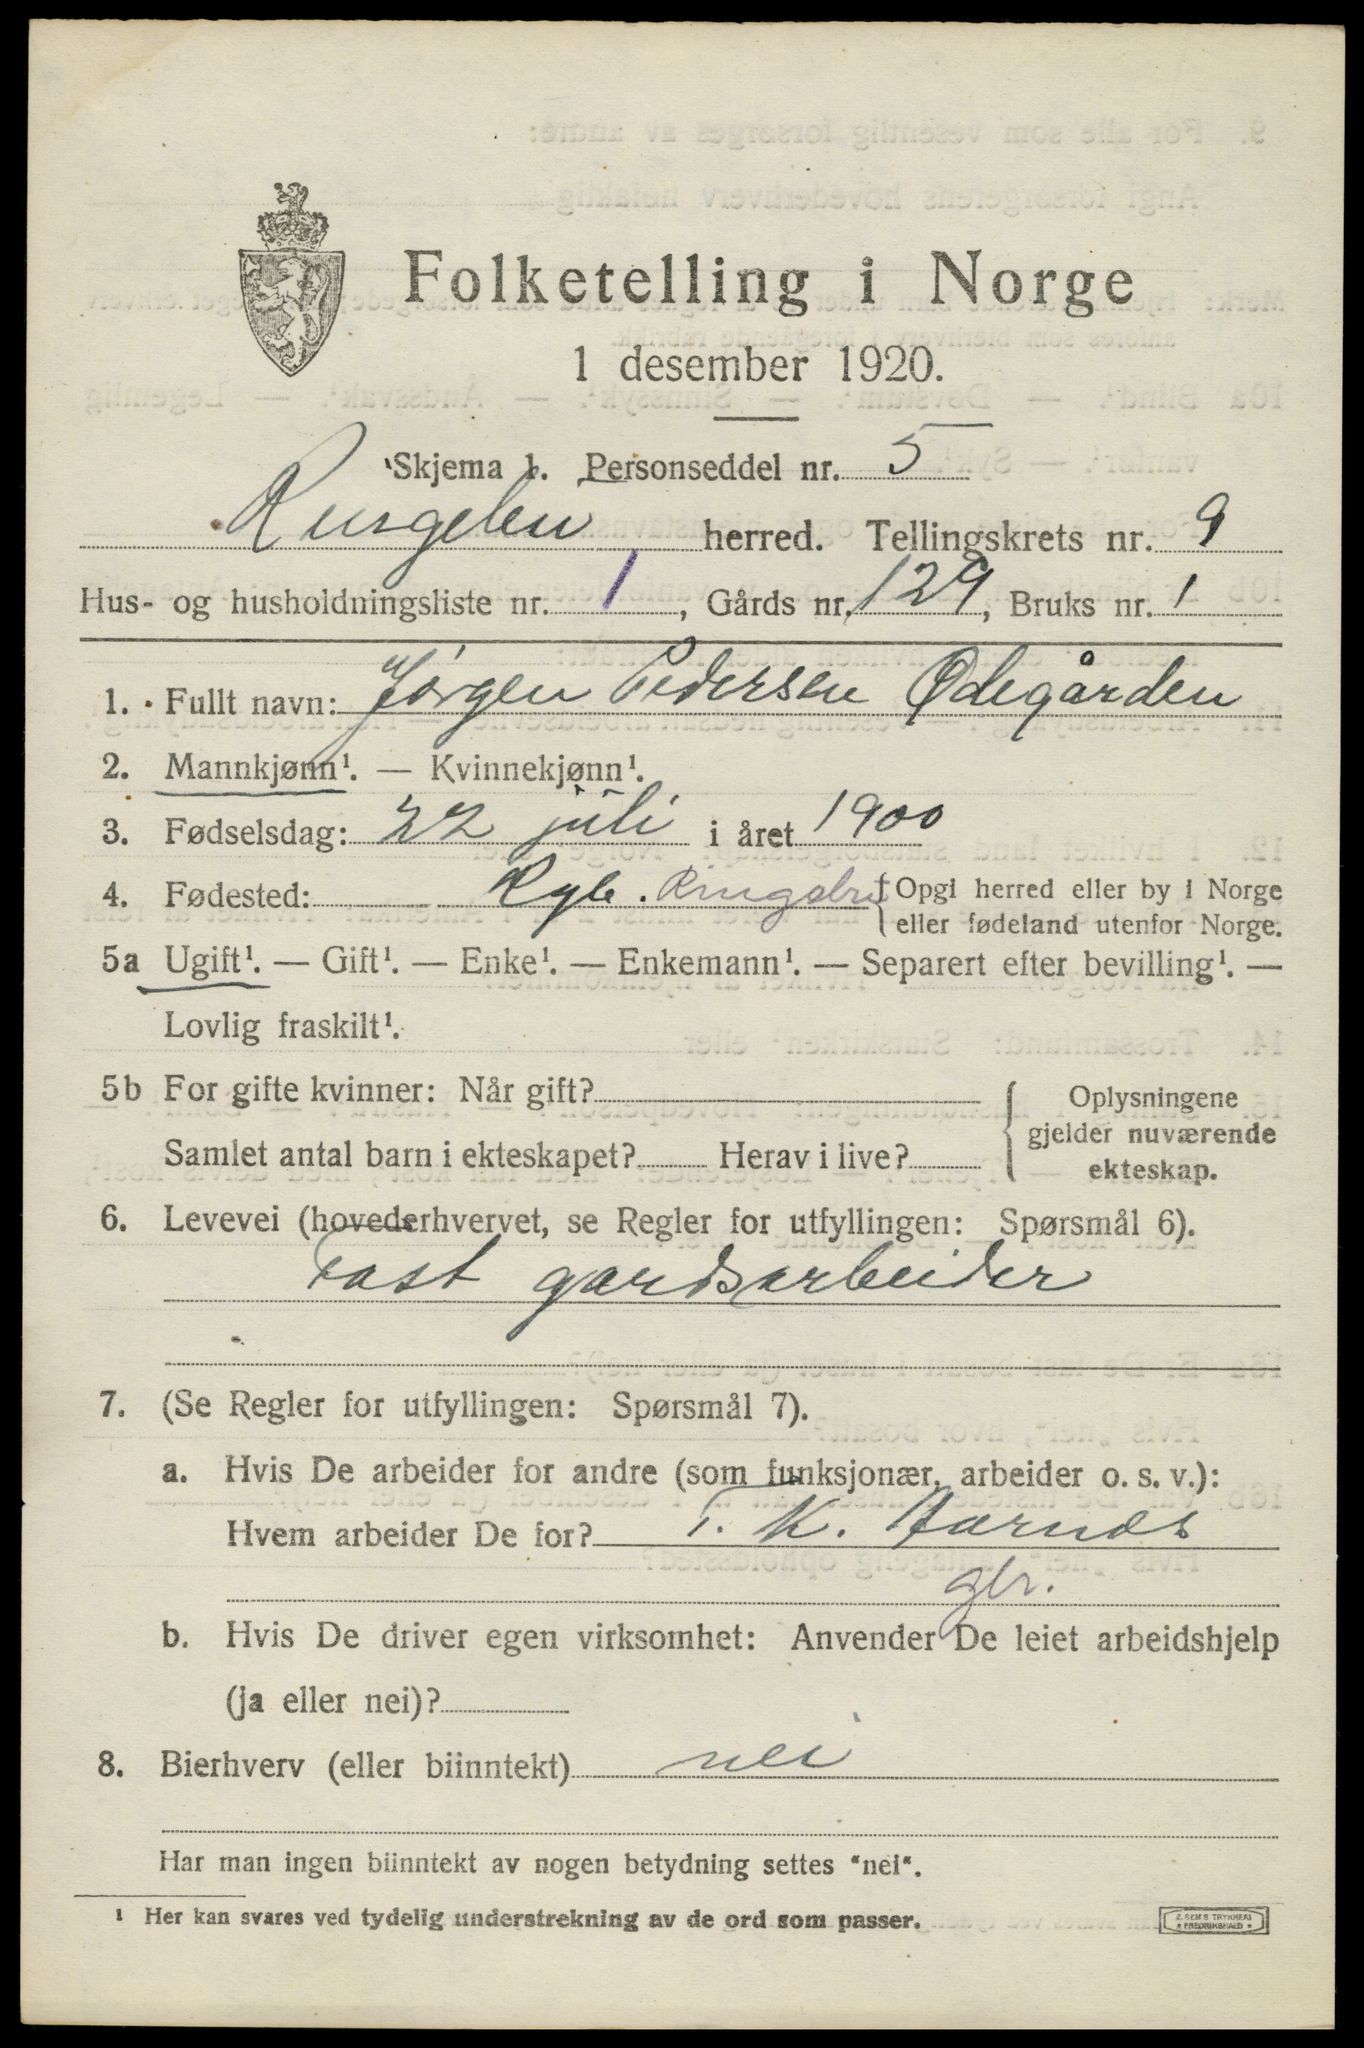 Folketelling i Norge
1 desember 1920.
Skjema 1. Personseddel nr. 5
Ringebu herred. Tellingskrets nr. 9
Hus- og husholdningsliste nr. 1, Gårds nr. 129, Bruks nr. 1
1. Fullt navn: Jørgen Pedersen Ødegården
2. Mannkjønn¹. — Kvinnekjønn¹.
3. Fødselsdag: 22 juli i året 1900
4. Fødested: Ringebu { Opgi herred eller by i Norge
eller fødeland utenfor Norge.
5a Ugift¹. — Gift¹. — Enke¹. — Enkemann¹. — Separert efter bevilling¹. —
Lovlig fraskilt¹.
5b For gifte kvinner: Når gift? Oplysningene
gjelder nuværende
Samlet antal barn i ekteskapet? Herav i live? ekteskap.
6. Levevei (hovederhvervet, se Regler for utfyllingen: Spørsmål 6).
Fast gardsarbeider
7. (Se Regler for utfyllingen: Spørsmål 7).
a. Hvis De arbeider for andre (som funksjonær, arbeider o. s. v.):
Hvem arbeider De for? T. K. Aarnes
gbr.
b. Hvis De driver egen virksomhet: Anvender De leiet arbeidshjelp
(ja eller nei)?
8. Bierhverv (eller biinntekt) nei
Har man ingen biinntekt av nogen betydning settes "nei".
¹ Her kan svares ved tydelig understrekning av de ord som passer.